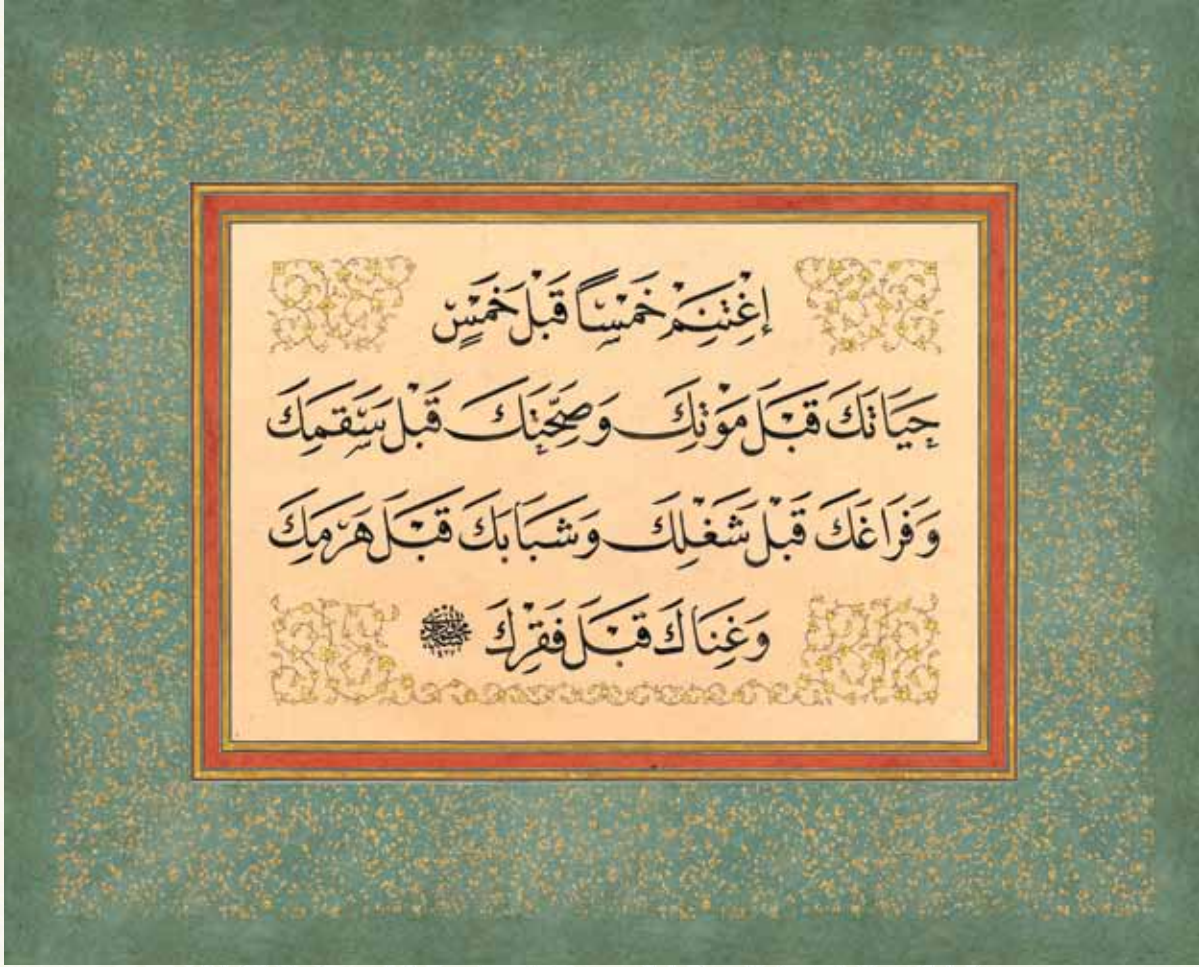 إِغْتَنِمْ خَمْسًا قَبْلَ خَمْسٍ
حَيَاتَكَ قَبْلَ مَوْتِكَ وَصِحَّتَكَ قَبْلَ سَقَمِكَ
وَفَرَاغَكَ قَبْلَ شَغْلِكَ وَشَبَابَكَ قَبْلَ هَرَمِكَ
وَغِنَاكَ قَبْلَ فَقْرِكَ